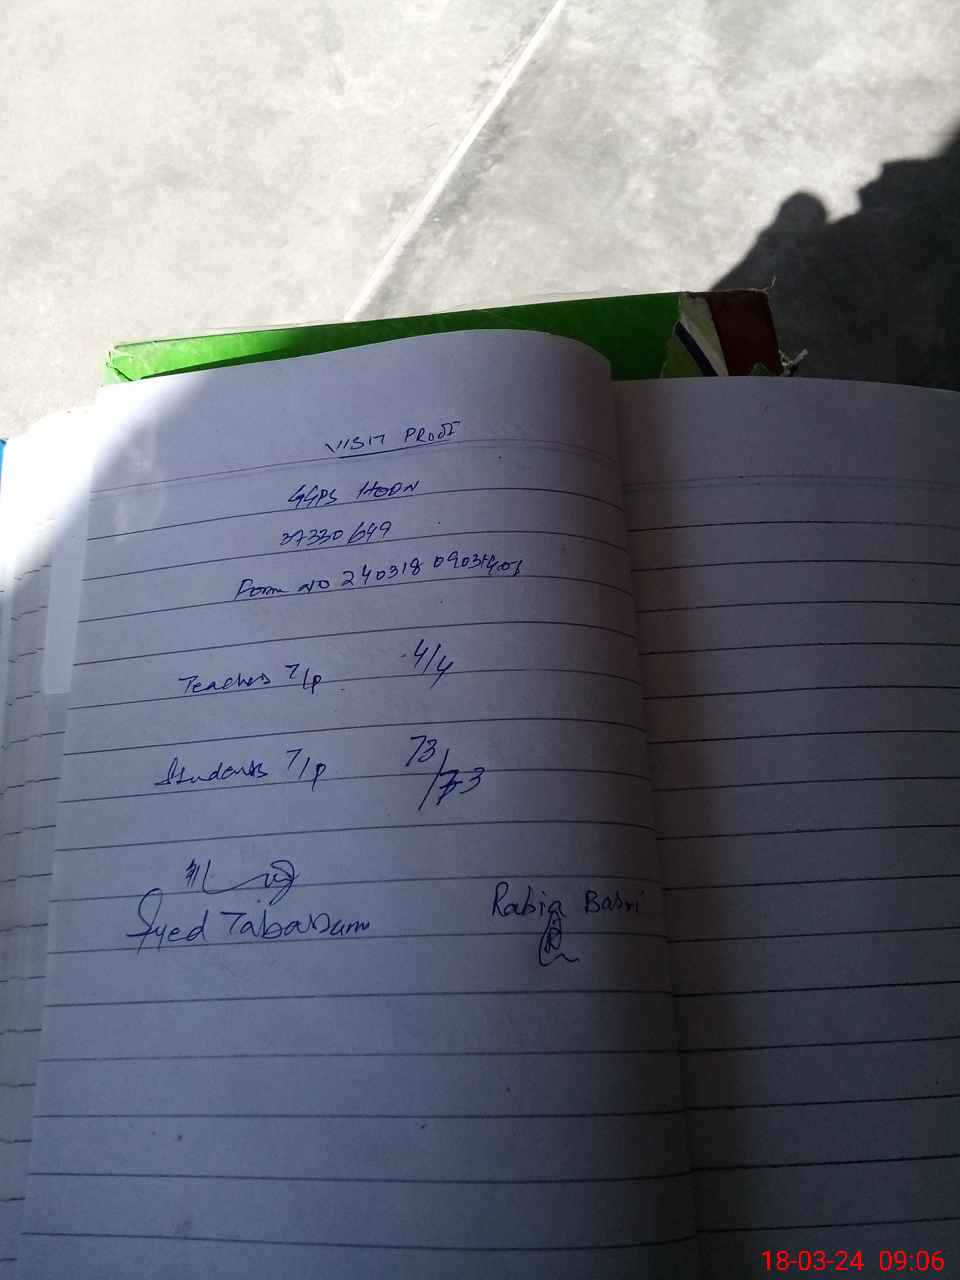 VISIT PROOF
GGPS HOON
37330649
Form NO 240318 09031403
Teachers T/p 4/4
Students T/p 73/73
Syed Tabasum
Rabia Basri
18-03-24 09:06